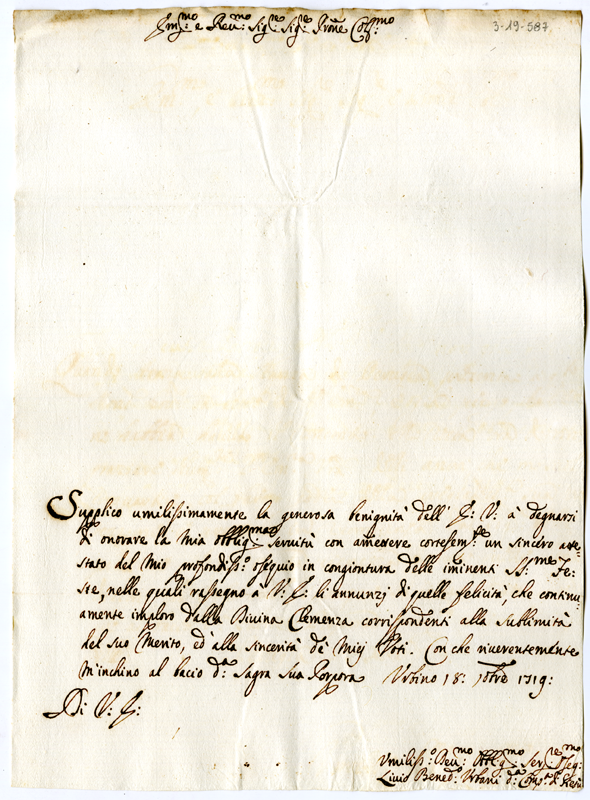 Em:mo e Reu:mo Sig:re Sig:re Prone Col:mo
3-19-587
Supplico umilissimamente la generosa benignità dell' E: V: à degnarsi
di onorare la mia obblig:ma seruitù con amettere cortesem:te un sincero atte-
stato del Mio profondiss:o ossequio in congiontura delle iminenti SS:me Fe-
ste, nelle quali rassegno à V: E: li annunzj di quelle felicità, che continu-
amente imploro dalla Diuina Clemenza corrispondenti alla sublimità
del suo Merito, ed' alla sincerità de' Miej Voti. Con che riuerentemente
m'inchino al bacio d:a Sagra Sua Porpora Urbino 18: Xbre 1719:
Di V: E:
Umiliss:o Deu:mo Obblig:mo Ser:re
Liuio Bened:o Urbani